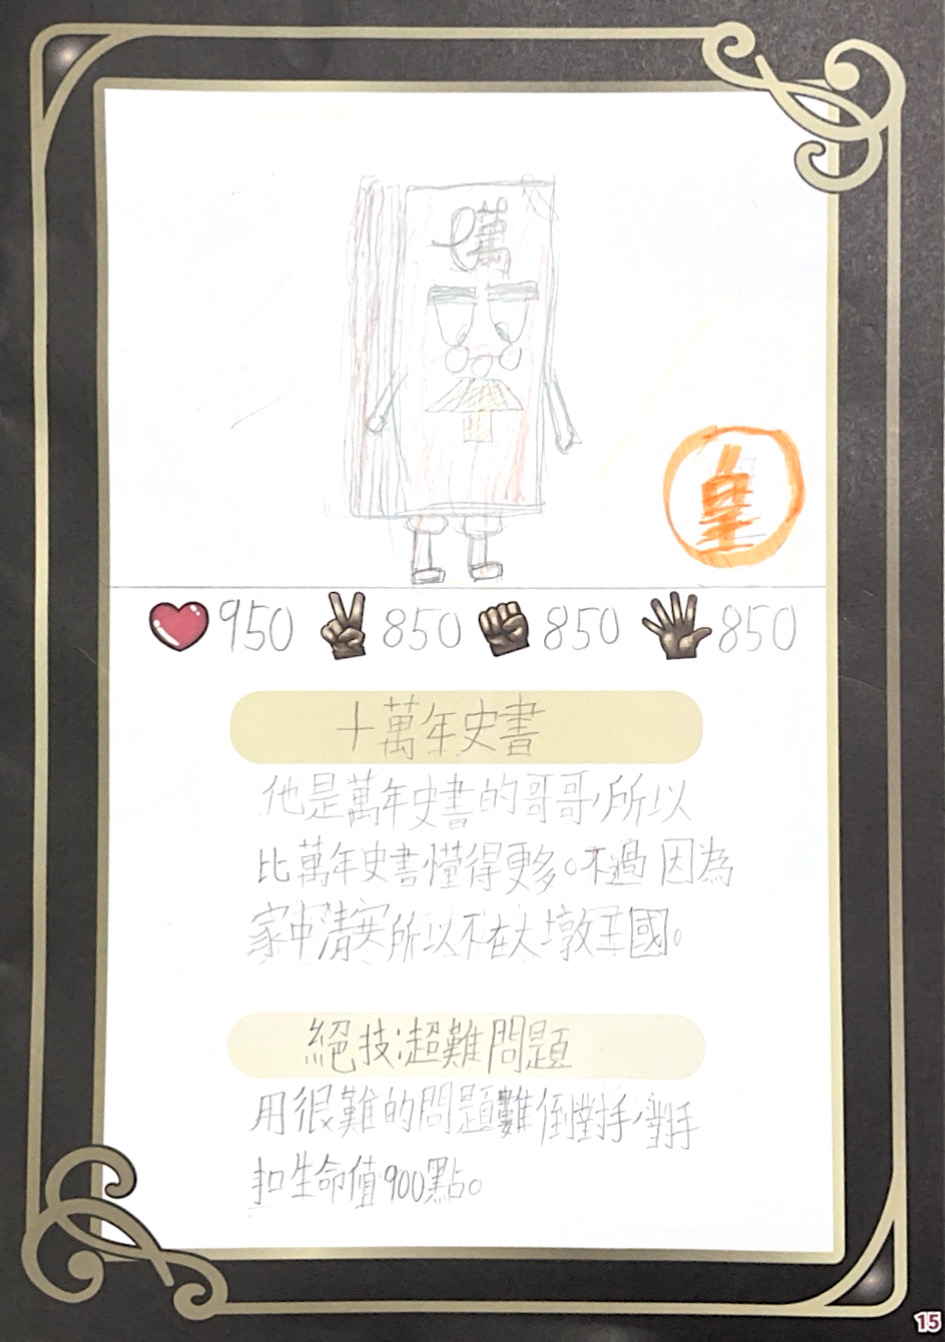 萬
皇
950 850 850 850
十萬年史書
他是萬年史書的哥哥,所以
比萬年史書懂得更多。不過因為
家中清安所以不在大墩王國。
絕技:超難問題
用很難的問題難倒對手,對手
扣生命值900點。
15